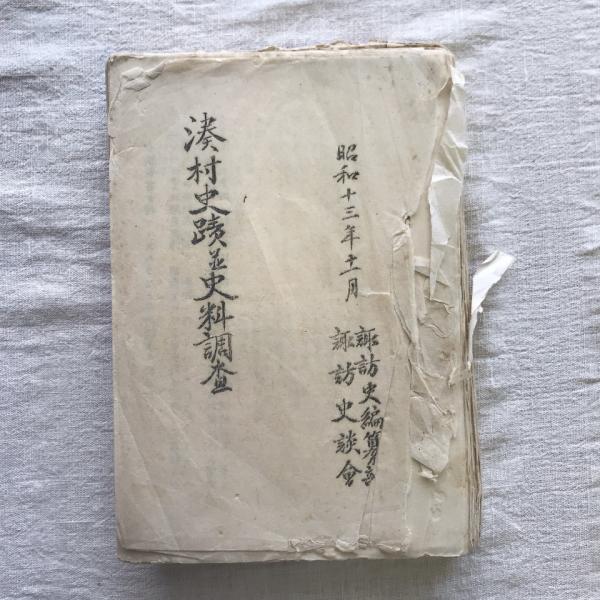 昭和十三年十一月
諏訪史編纂
諏訪史談會
湊村史蹟並史料調査